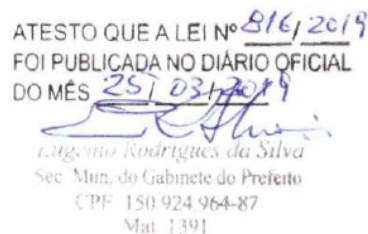 ATESTO QUE A LEI Nº 816/2019
FOI PUBLICADA NO DIÁRIO OFICIAL
DO MÊS 25/03/2019
Eugenio Rodrigues da Silva
Sec. Mun. do Gabinete do Prefeito
CPF 150.924.964-87
Mat. 1391